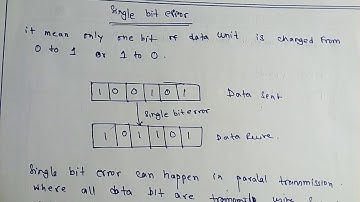 Single bit error
it mean only one bit of data unit is changed from
0 to 1 or 1 to 0.
1 0 0 1 0 1 Data Sent
Single bit error
1 0 1 1 0 1 Data
Single bit error can happen in paralal tranmission
where all data bit are wire